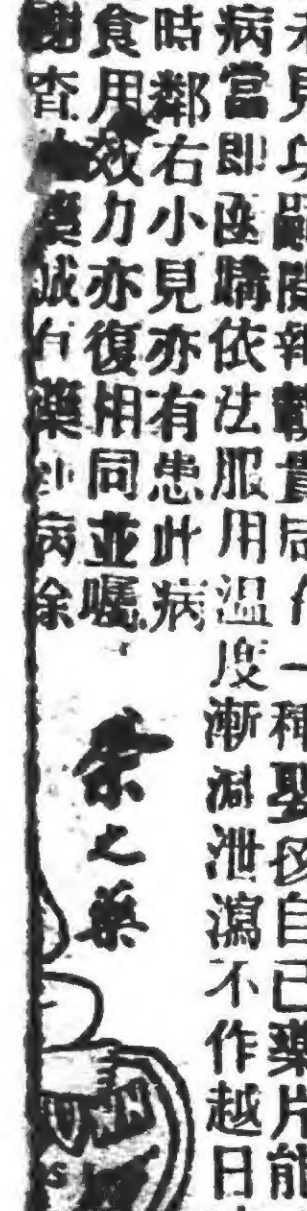 嗣閱報載貴局一種嬰孩自己藥片能
病當即函購依法服用溫度漸減泄瀉不作越日
時鄰右小兒亦有患此病
食用效力亦復相同並囑
謝查藥誠有藥到病除
之藥